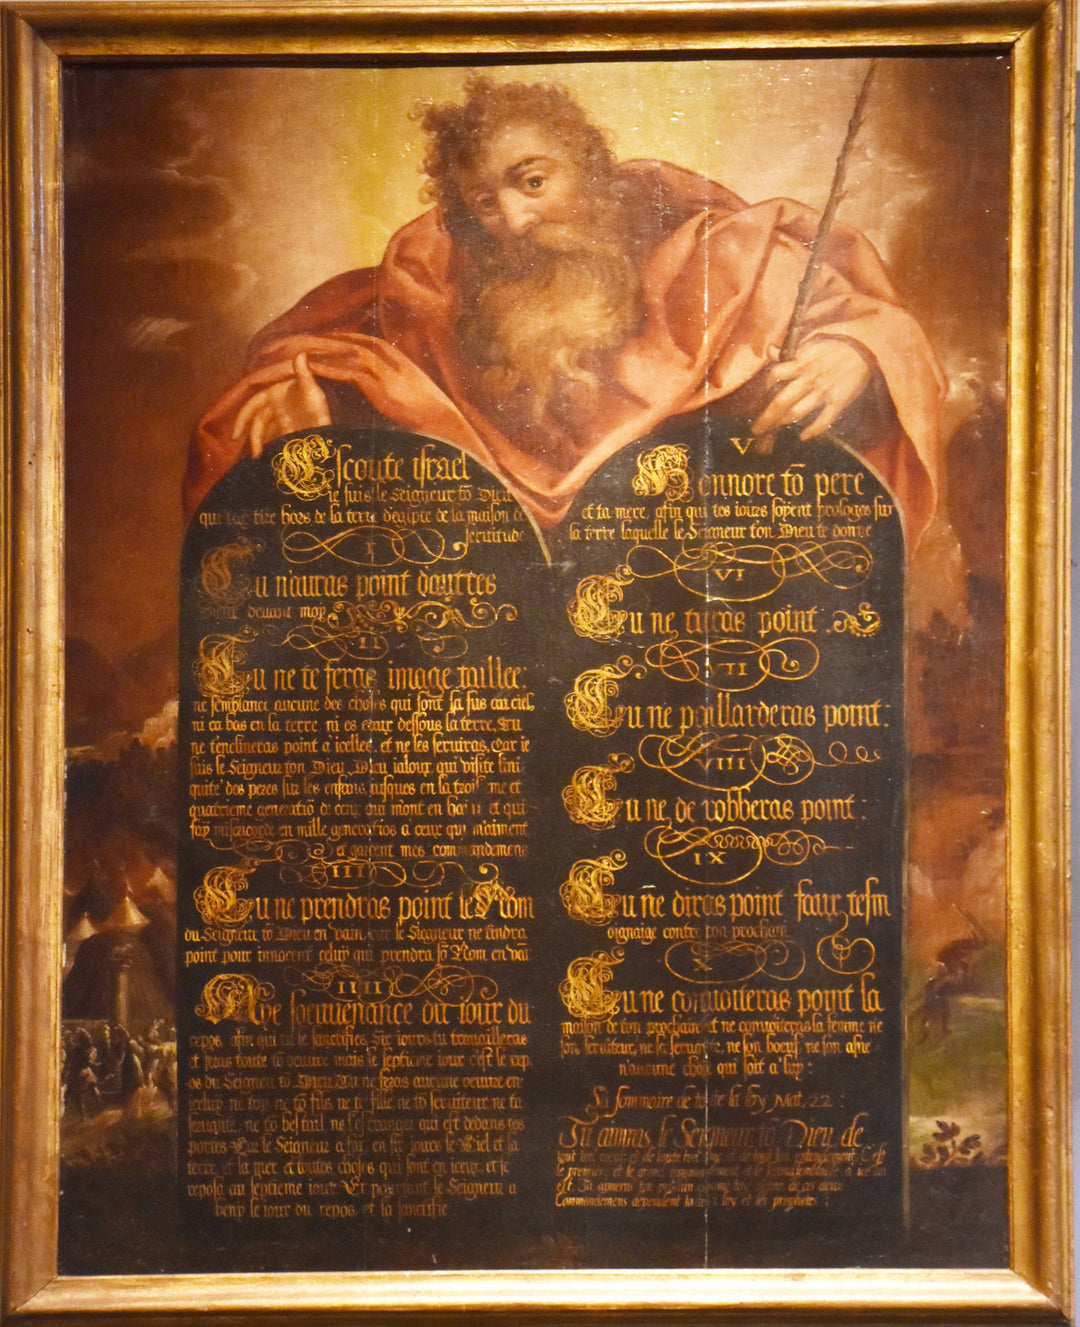 Escoute israel
ie suis le Seigneur tõ Dieu
qui t'ay tire hors de la terre degipte de la maison de
seruitude
I
Tu n'auras point dautres
deuant moy
II
Tu ne te feras image taillee:
ne semblance aucune des choses qui sont la sus au ciel,
ni ca bas en la terre ni es eaux dessous la terre, Tu
ne tenclineras point a icelles, et ne les seruiras, Car ie
suis le Seigneur ton Dieu, Dieu ialoux qui visite lini
quite des peres sur les enfans, iusques en la troisieme et
quatrieme generatiõ de ceux qui m'ont en hayne et qui
fay misericorde en mille generatiõs a ceux qui m'aiment
et gardent mes commandemens
III
Tu ne prendras point le Nom
du Seigneur tõ Dieu en vain, car le Siegneur ne tiendra
point pour innocent celuy qui prendra sõ Nom en vaī
IIII
Aye souuenance du iour du
repos afin que tu le sanctifies, Six iours tu trauailleras
et feras toute tõ oeuure mais le septieme iour c'est le rep,
os du Seigneur tõ Dieu, Tu ne feras aucune oeuure en
iceluy, ne toy, ne tõ fils, ne ta fille ne tõ seruiteur ne ta
seruante, ne tõ bestail ne l'estranger qui est dedans tes
portes Car le Seigneur a fait en six iours le Ciel et la
terre, et la mer et toutes choses qui sont en iceux, et se
reposa au septieme iour, Et pourtant le Seigneur a
beny le iour du repos, et la sanctifie.
V
Honnore tõ pere
et ta mere, afin que tes iours soyent prolõges sur
la terre laquelle le Seigneur ton Dieu te donne
VI
Tu ne tueras point:
VII
Tu ne paillarderas point:
VIII
Tu ne de robberas point:
IX
Tu ne diras point faux tesm
oignaige contre ton prochain
X
Tu ne conuoiteras point la
maison de ton prochain et ne conuoiteras la femme ne
son seruiteur, ne sa seruante, ne son boeuf ne son asne
n'aucune chose qui soit a luy:
La sommaire de toute la loy Mat. 22:
Tu aimras le Seigneur tõ Dieu de
tout ton coeur et de toute ton ame et de tout ton entendement C'est
le premier et le grand commandement et le second semblable a icelui
est Tu aymeras ton prochain comme toy mesme de ces deux
Commandemens dependent toute la loy et les prophetes: